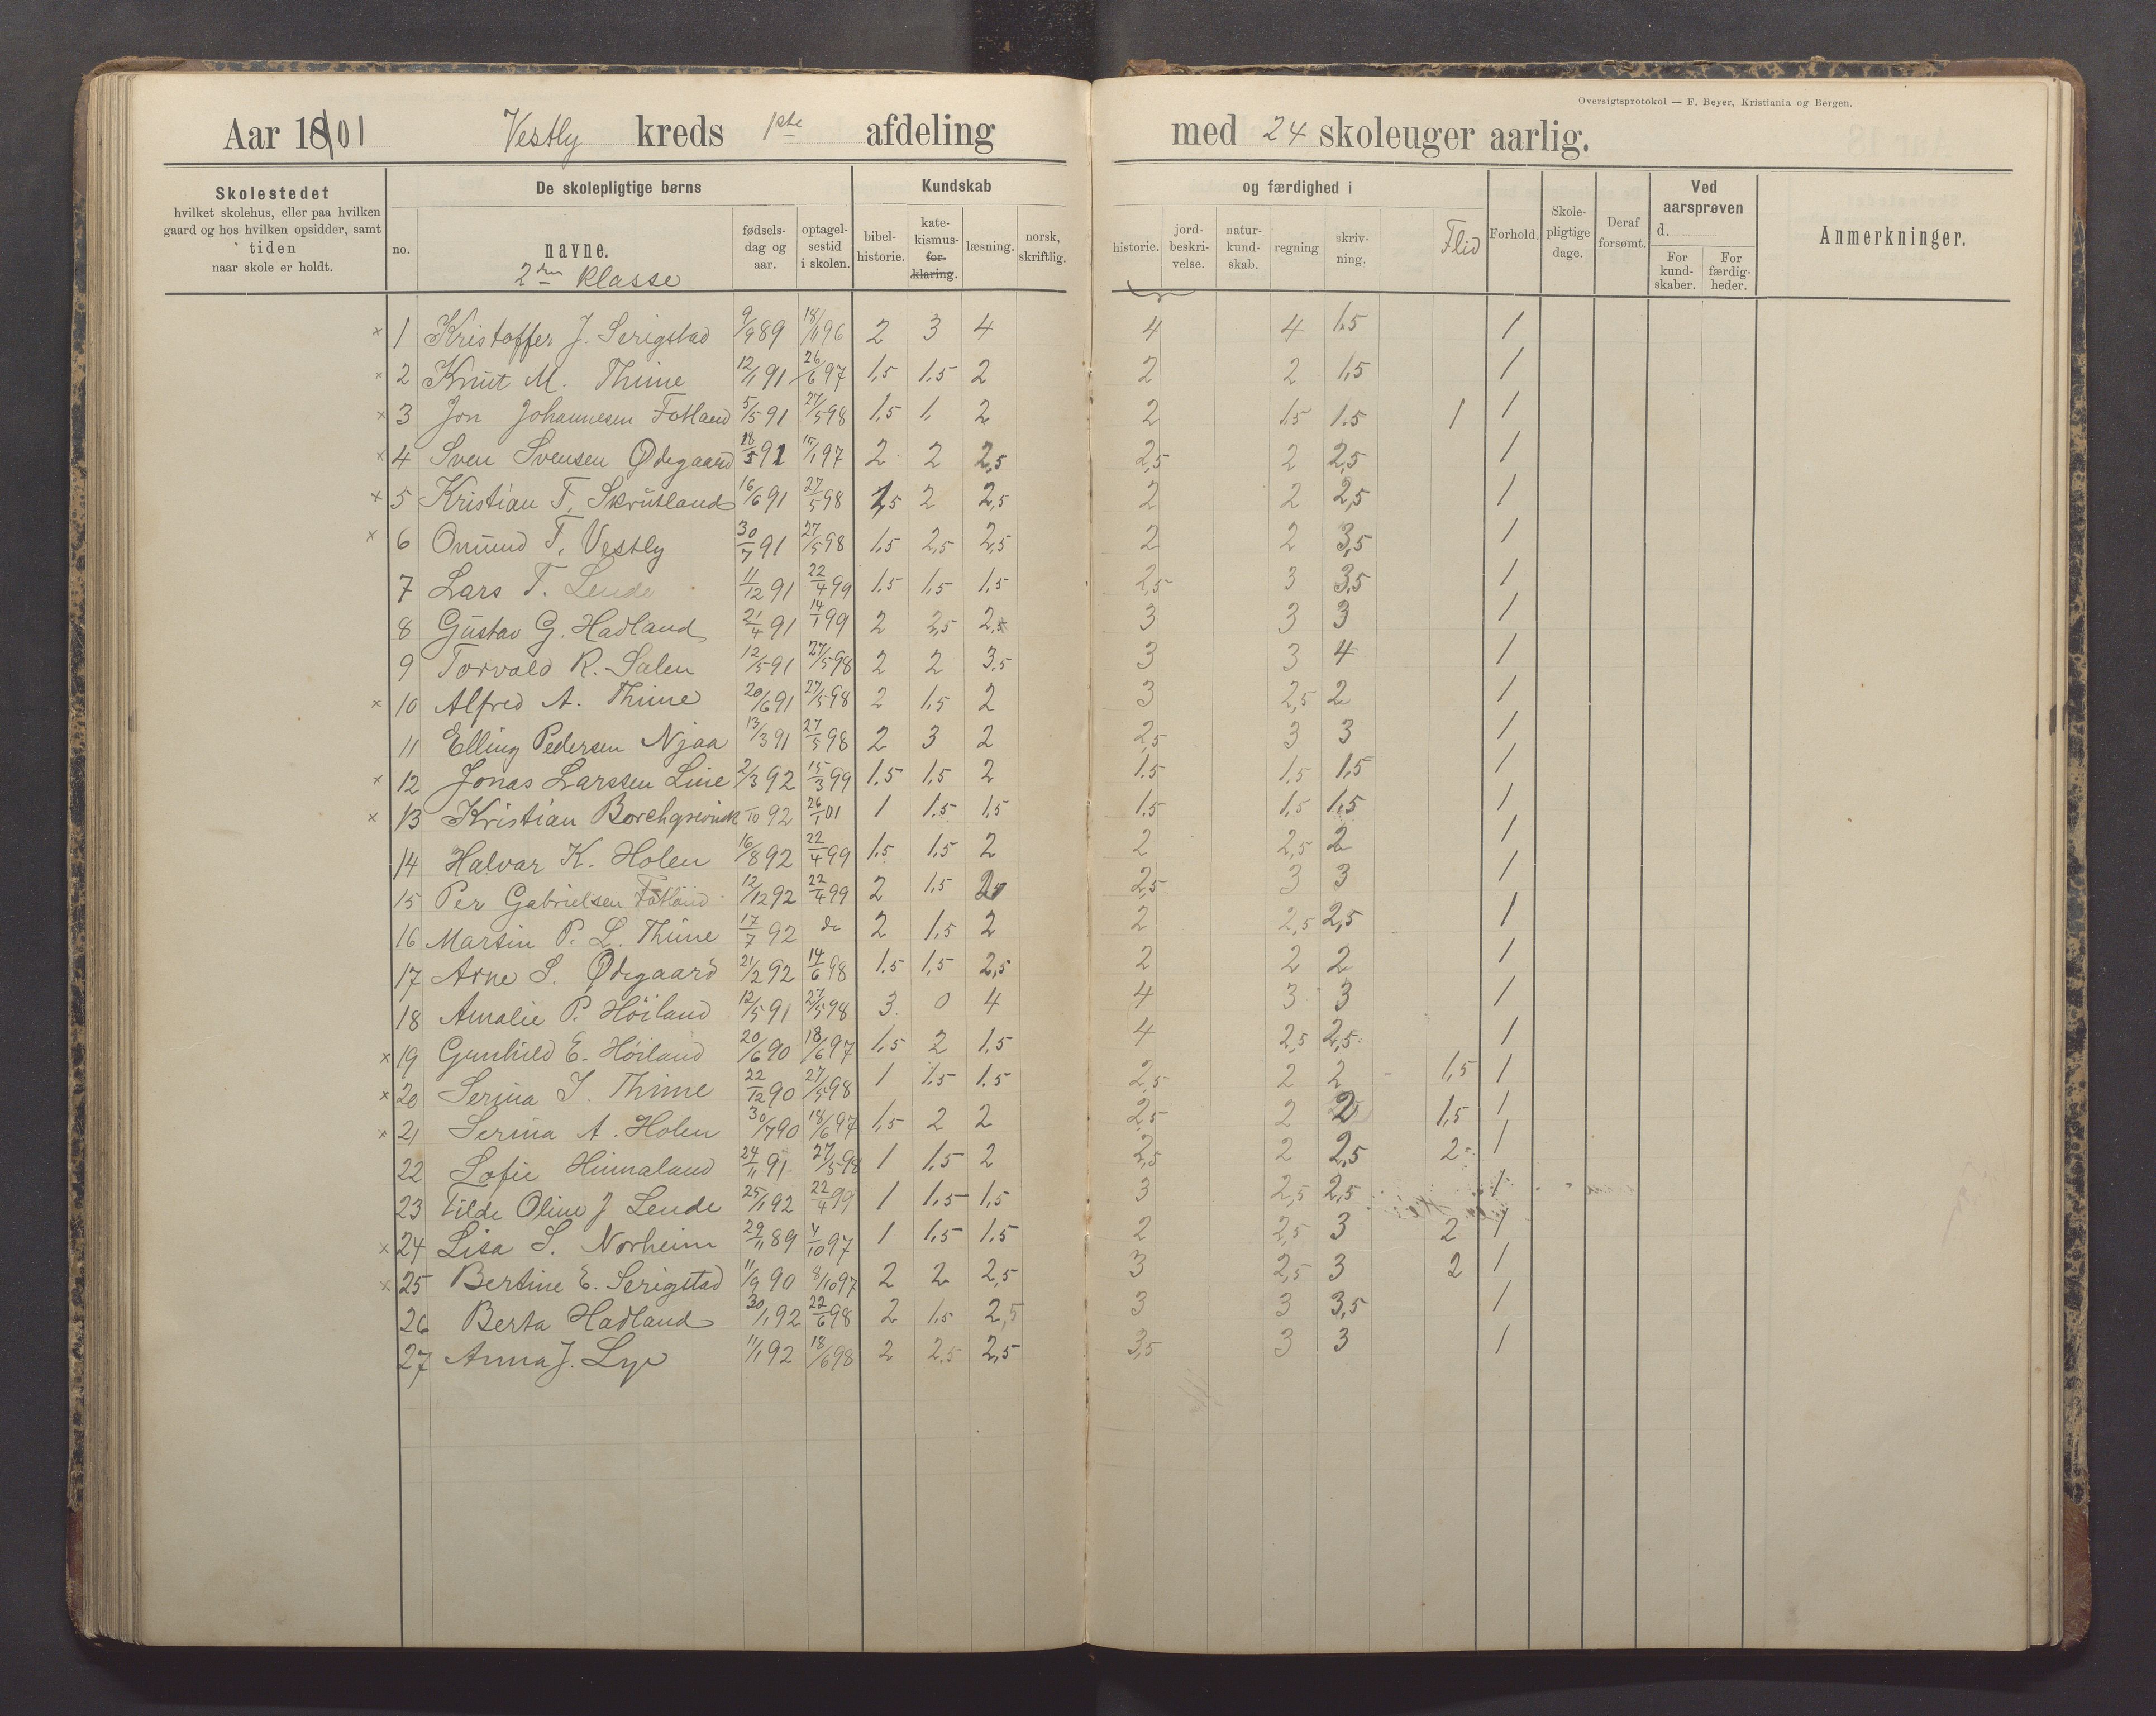 Oversigtsprotokol — F. Beyer, Kristiania og Bergen.
Aar 1901 Vestly kreds 1ste afdeling med 24 skoleuger aarlig.
Skolestedet hvilket skolehus, eller paa hvilken gaard og hos hvilken opsidder, samt tiden naar skole er holdt.
De skolepligtige børns
no. navne. fødsels-dag og aar. optagel-sestid i skolen.
2den klasse
Kundskab og færdighed i
bibel-historie. kate-kismus-for-klaring. læsning. norsk, skriftlig. historie. jord-beskri-velse. natur-kund-skab. regning skriv-ning. Flid Forhold. Skole-pligtige dage. Deraf forsømt. Ved aarsprøven d. For kund-skaber. For færdig-heder. Anmerkninger.
x 1 Kristoffer J. Serigstad 9/9 89 18/11 96 2 3 4 4 4 1.5 1
x 2 Knut M. Thime 12/1 91 26/6 97 1,5 1.5 2 2 2 1,5 1
x 3 Jon Johannesen Fotland 5/5 91 27/5 98 1,5 1, 2 2 1.5 1.5 1 1
x 4 Sven Svensen Ødegaard 18/5 91 15/1 97 2 2 2,5 2,5 2 2,5 1
x 5 Kristian T. Skrutland 16/6 91 27/5 98 1,5 2 2,5 2 2 2,5 1
x 6 Onund T. Vestly 30/7 91 27/5 98 1.5 2,5 2,5 2 2 3,5 1
7 Lars T. Lende 11/12 91 22/4 99 1.5 1,5 1,5 2,5 3 3,5 1
8 Gustav G. Hadland 21/4 91 14/1 99 2 2,5 2,5 3 3 3 1
9 Torvald R. Salen 12/5 91 27/5 98 2 2 3.5 3 3 4 1
x 10 Alfred A. Thime 20/6 91 27/5 98 2 1,5 2 3 2,5 2 1
11 Elling Pedersen Njaa 13/3 91 27/5 98 2 3 2 2,5 3 3 1
x 12 Jonas Larssen Line 2/3 92 15/3 99 1.5 1,5 2 1.5 1,5 1,5 1
x 13 Kristian Borchgrevink /10 92 26/1 01 1 1.5 1,5 1.5 1,5 1,5 1
14 Halvar K. Holen 16/8 92 22/4 99 1.5 1.5 2 2 2,5 2 1
15 Per Gabrielsen Fotland 12/12 92 22/4 99 2 1.5 2,5 3 3 1
16 Martin P. L. Thime 17/7 92 do 2 1,5 2 2 2,5 2,5 1
17 Arne S. Ødegaard 21/2 92 14/6 98 1.5 1,5 2,5 2 2 2 1
18 Amalie P. Höiland 12/5 91 27/5 98 3. 0 4 4 3 3 1
x 19 Gunhild E. Höiland 20/6 90 18/6 97 1,5 2 1,5 4 2,5 2,5 1
x 20 Serina J. Thime 22/12 90 27/5 98 1 1.5 1.5 2,5 2 2 1,5 1
x 21 Serina A. Holen 30/7 90 18/6 97 1,5 2 2 2,5 2 2 1,5 1
22 Sofie Hinnaland 24/11 91 27/5 98 1 1,5 2 2,5 2 2,5 2 1
23 Tilde Oline J Lende 25/1 92 22/4 99 1 1.5 1,5 3 2,5 2,5 1
x 24 Lisa S. Norheim 29/11 89 4/10 97 1 1,5 1.5 2 2,5 3 2 1
x 25 Bertine E. Serigstad 11/9 90 8/10 97 2 2 2,5 3 2,5 3 2 1
26 Berta Hadland 30/1 92 22/6 98 2 1.5 2,5 3 3 3,5 1
27 Anna J. Lye 11/1 92 18/6 98 2 2,5 2,5 3,5 3 3 1